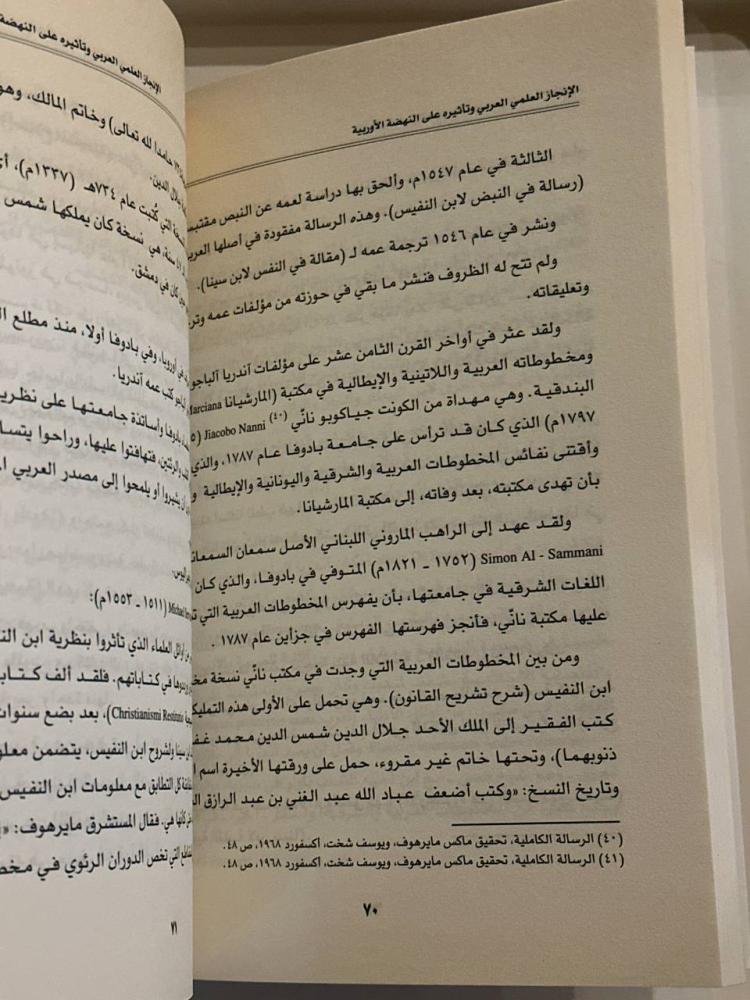 الإنجاز العلمي العربي وتأثيره على النهضة الأوربية
الثالثة في عام ١٥٤٧م، وألحق بها دراسة لعمه عن النبض
(رسالة في النبض لابن النفيس). وهذه الرسالة مفقودة في أصلها
ونشر في عام ١٥٤٦ ترجمة عمه لـ (مقالة في النفس لابن سينا).
ولم تتح له الظروف فنشر ما بقي في حوزته من مؤلفات عمه
وتعليقاته.
ولقد عثر في أواخر القرن الثامن عشر على مؤلفات آندريا
ومخطوطاته العربية واللاتينية والإيطالية في مكتبة (المارشيانا
البندقية. وهي مهداة من الكونت جياكوبو نانّي (٤٠) Jiacobo Nanni
١٧٩٧م) الذي كان قد ترأس على جامعة بادوفا عام ١٧٨٧، والذي
وأقتنى نفائس المخطوطات العربية والشرقية واليونانية والإيطالية
بأن تهدى مكتبته، بعد وفاته، إلى مكتبة المارشيانا.
ولقد عهد إلى الراهب الماروني اللبناني الأصل سمعان
Simon Al - Sammani (١٧٥٢ ـ ١٨٢١م) المتوفي في بادوفا، والذي كان
اللغات الشرقية في جامعتها، بأن يفهرس المخطوطات العربية التي
عليها مكتبة نانّي، فأنجز فهرستها الفهرس في جزأين عام ١٧٨٧ .
ومن بين المخطوطات العربية التي وجدت في مكتب نانّي نسخة
ابن النفيس (شرح تشريح القانون). وهي تحمل على الأولى هذه
كتب الفقير إلى الملك الأحد جلال الدين شمس الدين محمد
ذنوبهما)، وتحتها خاتم غير مقروء، حمل على ورقتها الأخيرة اسم
وتاريخ النسخ: «وكتب أضعف عباد الله عبد الغني بن عبد الرازق
(٤٠) الرسالة الكاملية، تحقيق ماكس مايرهوف، ويوسف شخت، أكسفورد ١٩٦٨، ص ٤٨.
(٤١) الرسالة الكاملية، تحقيق ماكس مايرهوف، ويوسف شخت، أكسفورد ١٩٦٨، ص ٤٨.
٧٠
الإنجاز العلمي العربي وتأثيره على النهضة
حامدا لله تعالى) وخاتم المالك، وهو
جلال الدين.
التي كُتبت عام ٧٣٤هـ (١٣٣٧م)،
سنة، هي نسخة كان يملكها شمس
كان في دمشق.
أوروبا، وفي بادوفا أولا، منذ مطلع
كتب عمه آندريا.
بادوفا وأساتذة جامعتها على
فتهافتوا عليها، وراحوا
يشيروا أو يلمحوا إلى مصدر العربي
(١٥١١ ـ ١٥٥٣م):
أوائل العلماء الذي تأثروا بنظرية ابن
في كتاباتهم. فلقد ألف
(Christianismi Restituto)، بعد بضع سنوات
سينا ولشروح ابن النفيس، يتضمن
كل التطابق مع معلومات ابن النفيس
هي. فقال المستشرق مايرهوف:
التي تخص الدوران الرئوي في
٧١